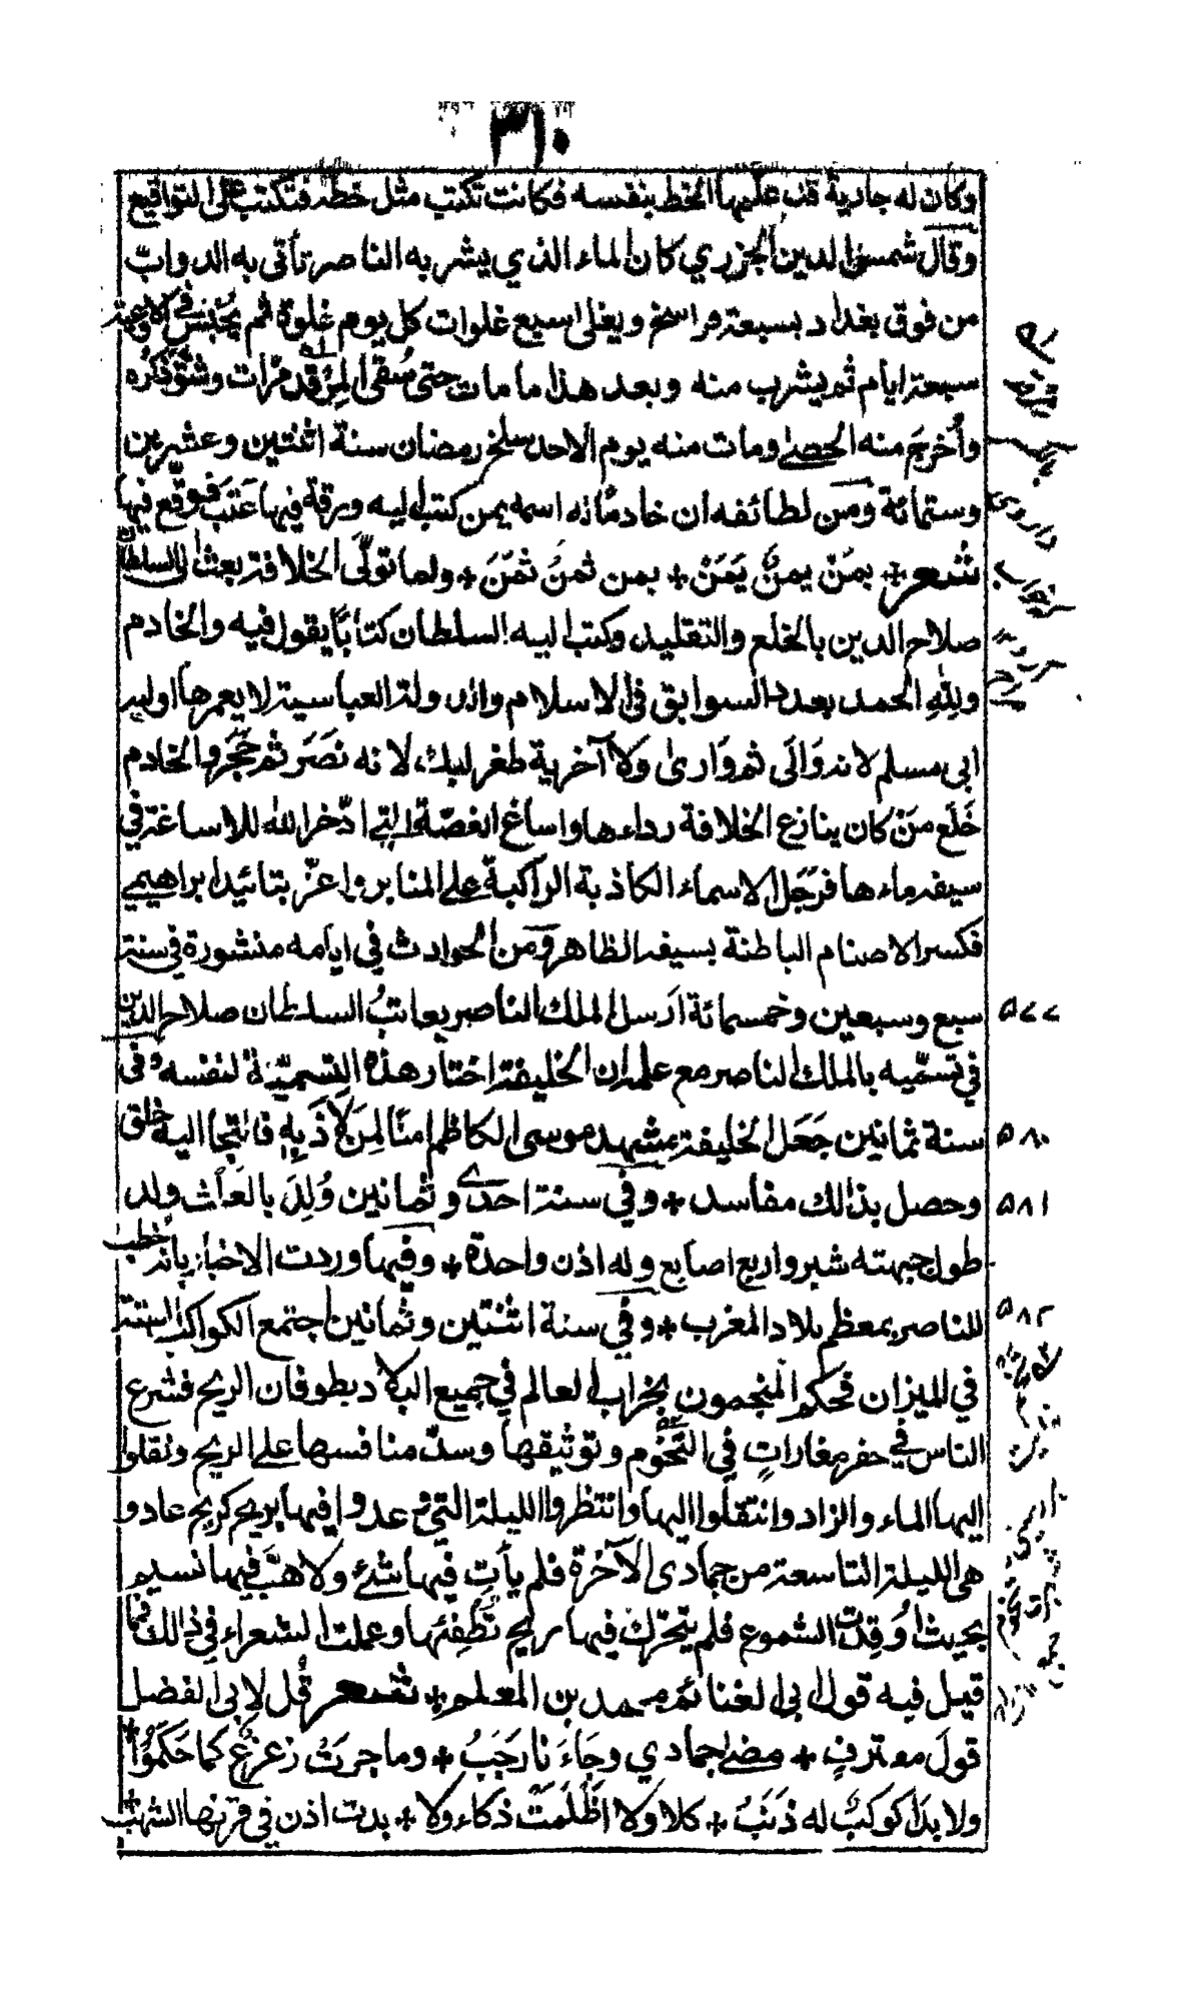 ٣١٠
وكان له جارية قد علمها الخط بنفسه فكانت تكتب مثل خطه فتكتب على التواقيع
وقال شمس الدين الجزري كان الماء الذي يشربه الناصر تأتى به الدوابّ
من فوق بغداد بسبعة فراسخ ويغلى سبع غلوات كل يوم غلوة ثم يُحبَس في الاوعية
سبعة ايام ثم يشرب منه وبعد هذا ما مات حتى سُقى المُرقد مرّات وشق ذكره
وأُخرِجَ منه الحصى ومات منه يوم الاحد سلخ رمضان سنة اثنتين وعشرين
وستمائة ومن لطائفه ان خادمًا له اسمه يمن كتب اليه ورقة فيها عَتَب فوقّع فيها
شعر * بمَنْ يمنُّ يَمَنْ * بمن ثمنُ ثمَنَ * ولما تولّى الخلافة بعث الى السلطان
صلاح الدين بالخلع والتقليد وكتب اليه السلطان كتابًا يقول فيه والخادم
ولِلّهِ الحمد يعدد السوابق في الاسلام والدولة العباسية لا يعمرها اولية
ابى مسلم لانه وَالَى ثم وَارىٰ ولا آخرية طغرلبك لانه نَصَرَ ثم حَجَرَ والخادم
خَلَعَ مَنْ كان ينازع الخلافة رداءها واساغ الغصّة التي ادّخر الله للاساغة في
سيفه ماءها فرَجّل الاسماء الكاذبة الراكبة على المنابر واعزّ بتائيد ابراهيمي
فكسر الاصنام الباطنة بسيفه الظاهر ومن الحوادث في ايامه منشورة في سنة
سبع وسبعين وخمسمائة ارسل الملك الناصر يعاتبُ السلطان صلاح الدين ٥٧٧
في تسمّيه بالملك الناصر مع علمه ان الخليفة اختار هذه التسميّة لنفسه وفى
سنة ثمانين جَعَل الخليفة مشهد موسى الكاظم امنًا لِمَنْ لاذَ بِهِ فالتجا اليه خلق ٥٨٠
وحصل بذالك مفاسد * وفي سنة احدى وثمانين وُلِدَ بالعَلث ولد ٥٨١
طول جبهته شبر واربع اصابع وله اذن واحدة * وفيها وردت الاخبار بانه خطب
للناصر بمعظم بلاد المغرب * وفي سنة اثنتين وثمانين اجتمع الكواكب الستة ٥٨٢
في الميزان فحكم المنجمون بخراب العالم في جميع البلاد بطوفان الريح فشرع
الناس في حفر مغاراتٍ في التخوم وتوثيقها وسدّ منافسها على الريح ونقلوا
اليها الماء والزاد وانتقلوا اليها وانتظروا الليلة التي وعدوا فيها بريح كريح عاد و
هى الليلة التاسعة من جمادى الآخرة فلم يأتِ فيها شئ ولا هبَّ فيها نسيم
بحيث اُوقِدت الشموع فلم يتحرّك فيها ريح تُطفِئها وعملت الشعراء في ذالك فما
قيل فيه قول ابى الغنائم محمد بن المعلم * شعر قُل لِابى الفضل
قولَ معترفٍ * مضى جمادي وجَاءَنا رَجَبُ * وما جرَتْ زعزعٌ كما حَكَمُوْا *
ولا بدا كوكبٌ له ذَنَبُ * كلا ولا اظْلَمَتْ ذكاء ولا * بدت اذن في قرنها الشهب